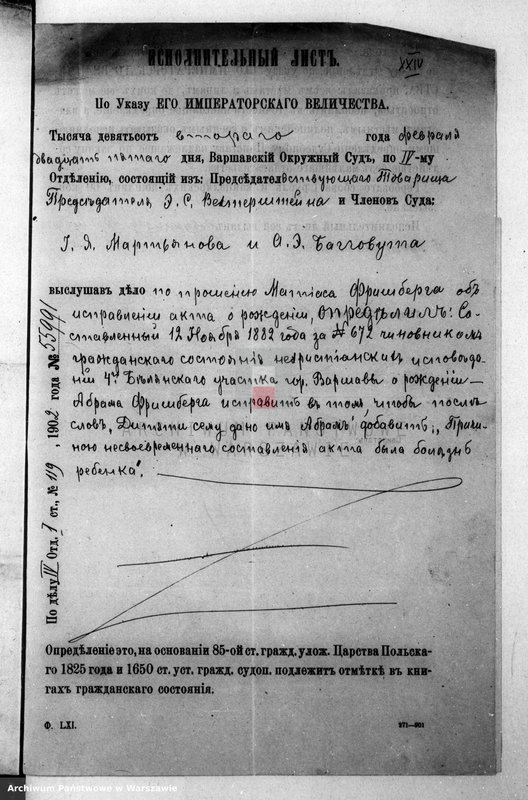 ИСПОЛНИТЕЛЬНЫЙ ЛИСТЪ.
XXIV
По Указу ЕГО ИМПЕРАТОРСКАГО ВЕЛИЧЕСТВА.
Тысяча девятьсот второго года февраля
двадцать пятаго дня, Варшавскій Окружный Судъ, по IV-му
Отдѣленію, состоящій изъ: Предсѣдательствующаго Товарища
Предсѣдателя Э. С. и Членовъ Суда:
І. Я. Мартынова и О. Э. Багговута
выслушавъ дѣло по прошенію Матіаса Фришберга объ
исправленіи акта о рожденіи, опредѣлилъ: Со-
ставленный 12 Ноября 1882 года за № 672 чиновникомъ
гражданскаго состоянія нехристіанскихъ исповѣда-
ній 4го участка гор. Варшавы о рожденіи
Абрама Фришберга исправить въ томъ, чтобы послѣ
словъ "Дитяти сему дано имя Абрамъ" добавить: "Причи-
ною несвоевременнаго составленія акта была болѣзнь
ребенка".
По дѣлу IV Отд. 1 ст., № 119, 1902 года № 55991
Опредѣленіе это, на основаніи 85-ой ст. гражд. улож. Царства Польска-
го 1825 года и 1650 ст. уст. гражд. судоп. подлежитъ отмѣткѣ въ кни-
гахъ гражданскаго состоянія.
Ф. LXI.
271—901
Archiwum Państwowe w Warszawie